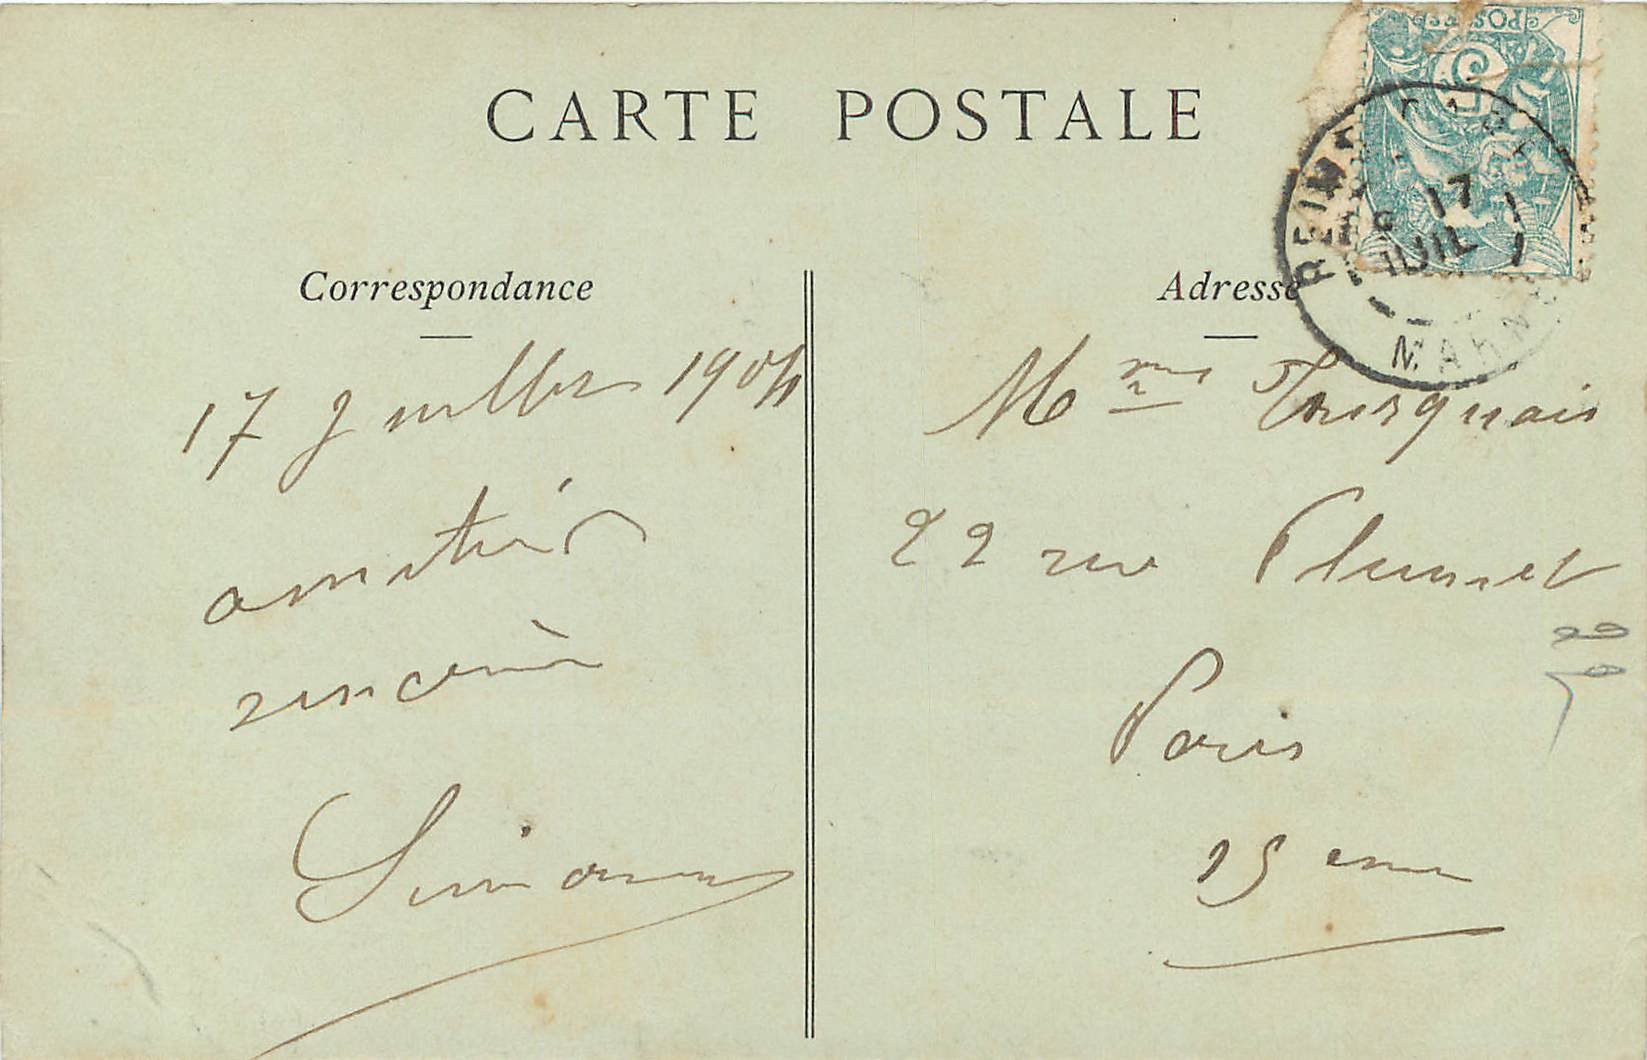 CARTE POSTALE
POSTES
5
REIMS GARE
17
JUIL
MARNE
Correspondance
17 Juillet 1904
amitié
sincère
Simonne
Adresse
Mme Turquais
22 rue Plumet
Paris
15 eme